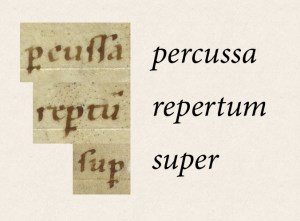 ꝑcuſſa percussa
reꝑtū repertum
ſuꝑ super